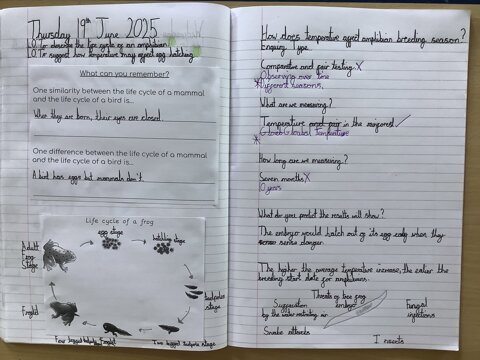 Thursday 19th June 2025
LO To describe the life cycle of an amphibian
LO To suggest how temperature may affect egg hatching
What can you remember?
One similarity between the life cycle of a mammal
and the life cycle of a bird is...
When they are born, their eyes are closed.
One difference between the life cycle of a mammal
and the life cycle of a bird is...
A bird has eggs but mammals don't.
Life cycle of a frog
egg stage
hatching stage
Adult
Frog
Stage
tadpole
stage
Froglet
Four legged tadpole Froglet
Two legged tadpole stage
How does temperature affect amphibian breeding season?
Enquiry Type
Comparative and fair testing X
Observing over time
*Different seasons,
What are we measuring?
Temperature and pair in the rainforest
* Global temperature
How long are we measuring?
Seven months X
0 years
What do you predict the results will show?
The embryo would hatch out of its egg early when they
sense danger.
The higher the average temperature increase, the earlier the
breeding start date for amphibians.
Threats of tree frog
embryo
Suffocation
by the water
Fungal
infections
Snake attacks
Insects